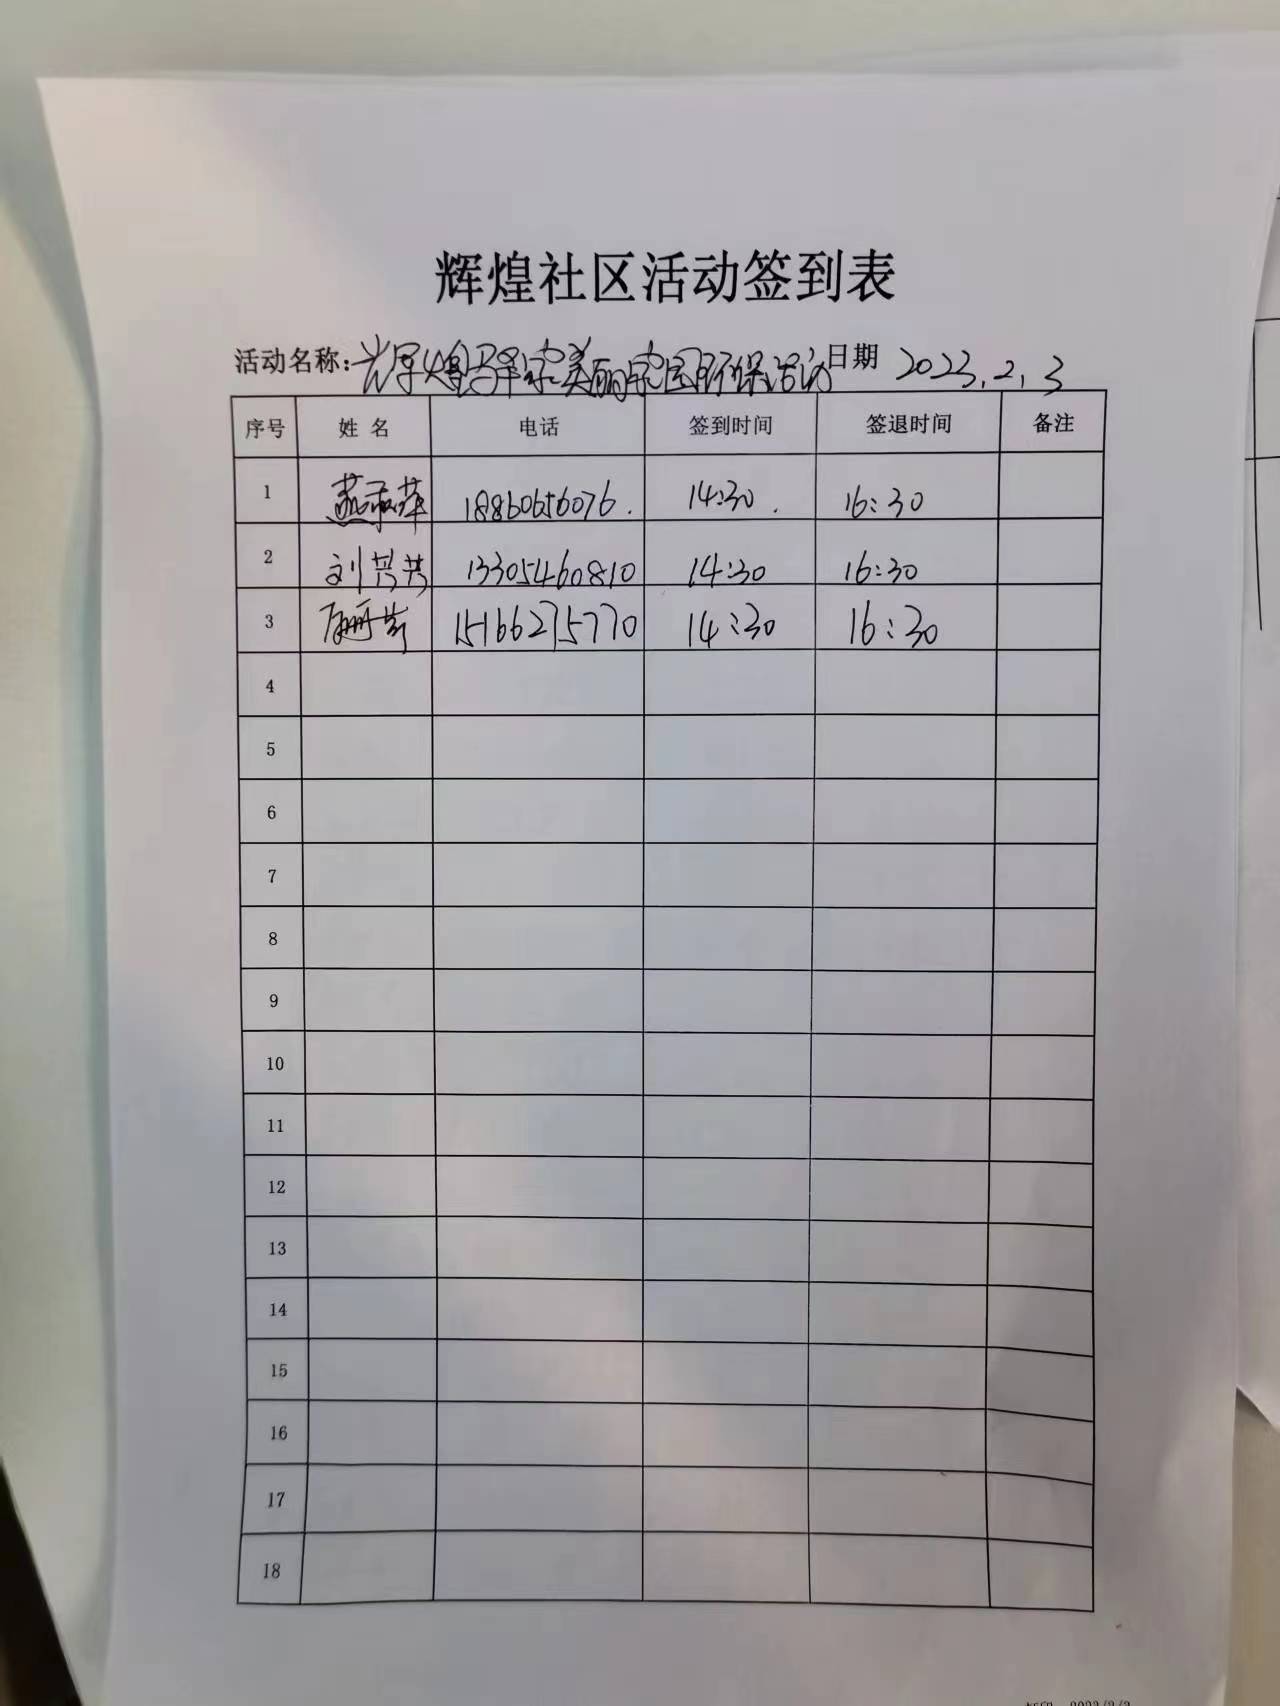 辉煌社区活动签到表
活动名称：辉煌泽宗美丽家园环保活动 日期 2023.2.3
序号 姓名 电话 签到时间 签退时间 备注
1 燕 萍 18860656076. 14:30. 16:30
2 刘芸芸 13305460810 14:30 16:30
3 15166275770 14:30 16:30
4
5
6
7
8
9
10
11
12
13
14
15
16
17
18